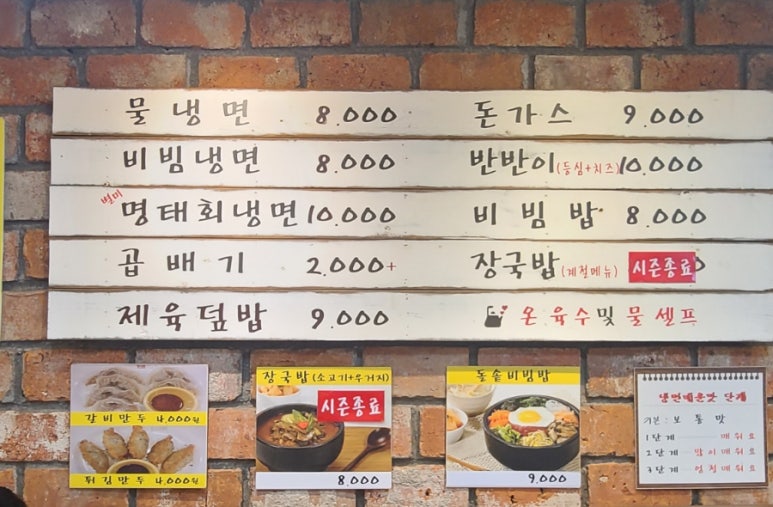 물냉면 8.000
비빔냉면 8.000
별미 명태회냉면 10.000
곱배기 2.000+
제육덮밥 9.000
돈가스 9.000
반반이(등심+치즈) 10.000
비빔밥 8.000
장국밥(계절메뉴) 시즌종료
온육수및 물 셀프
갈비만두 4,000원
튀김만두 4,000원
장국밥(소고기+우거지)
시즌종료
8.000
돌솥비빔밥
9.000
냉면매운맛 단계
기본: 보통맛
1단계 매워요
2단계 많이매워요
3단계 엄청매워요